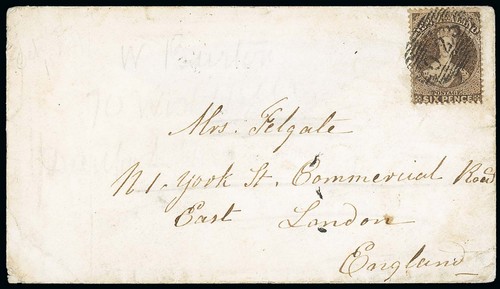 W
POSTAGE
SIX PENCE
Mrs. Felgate
N 1 York St. Commercial Road
East London
England